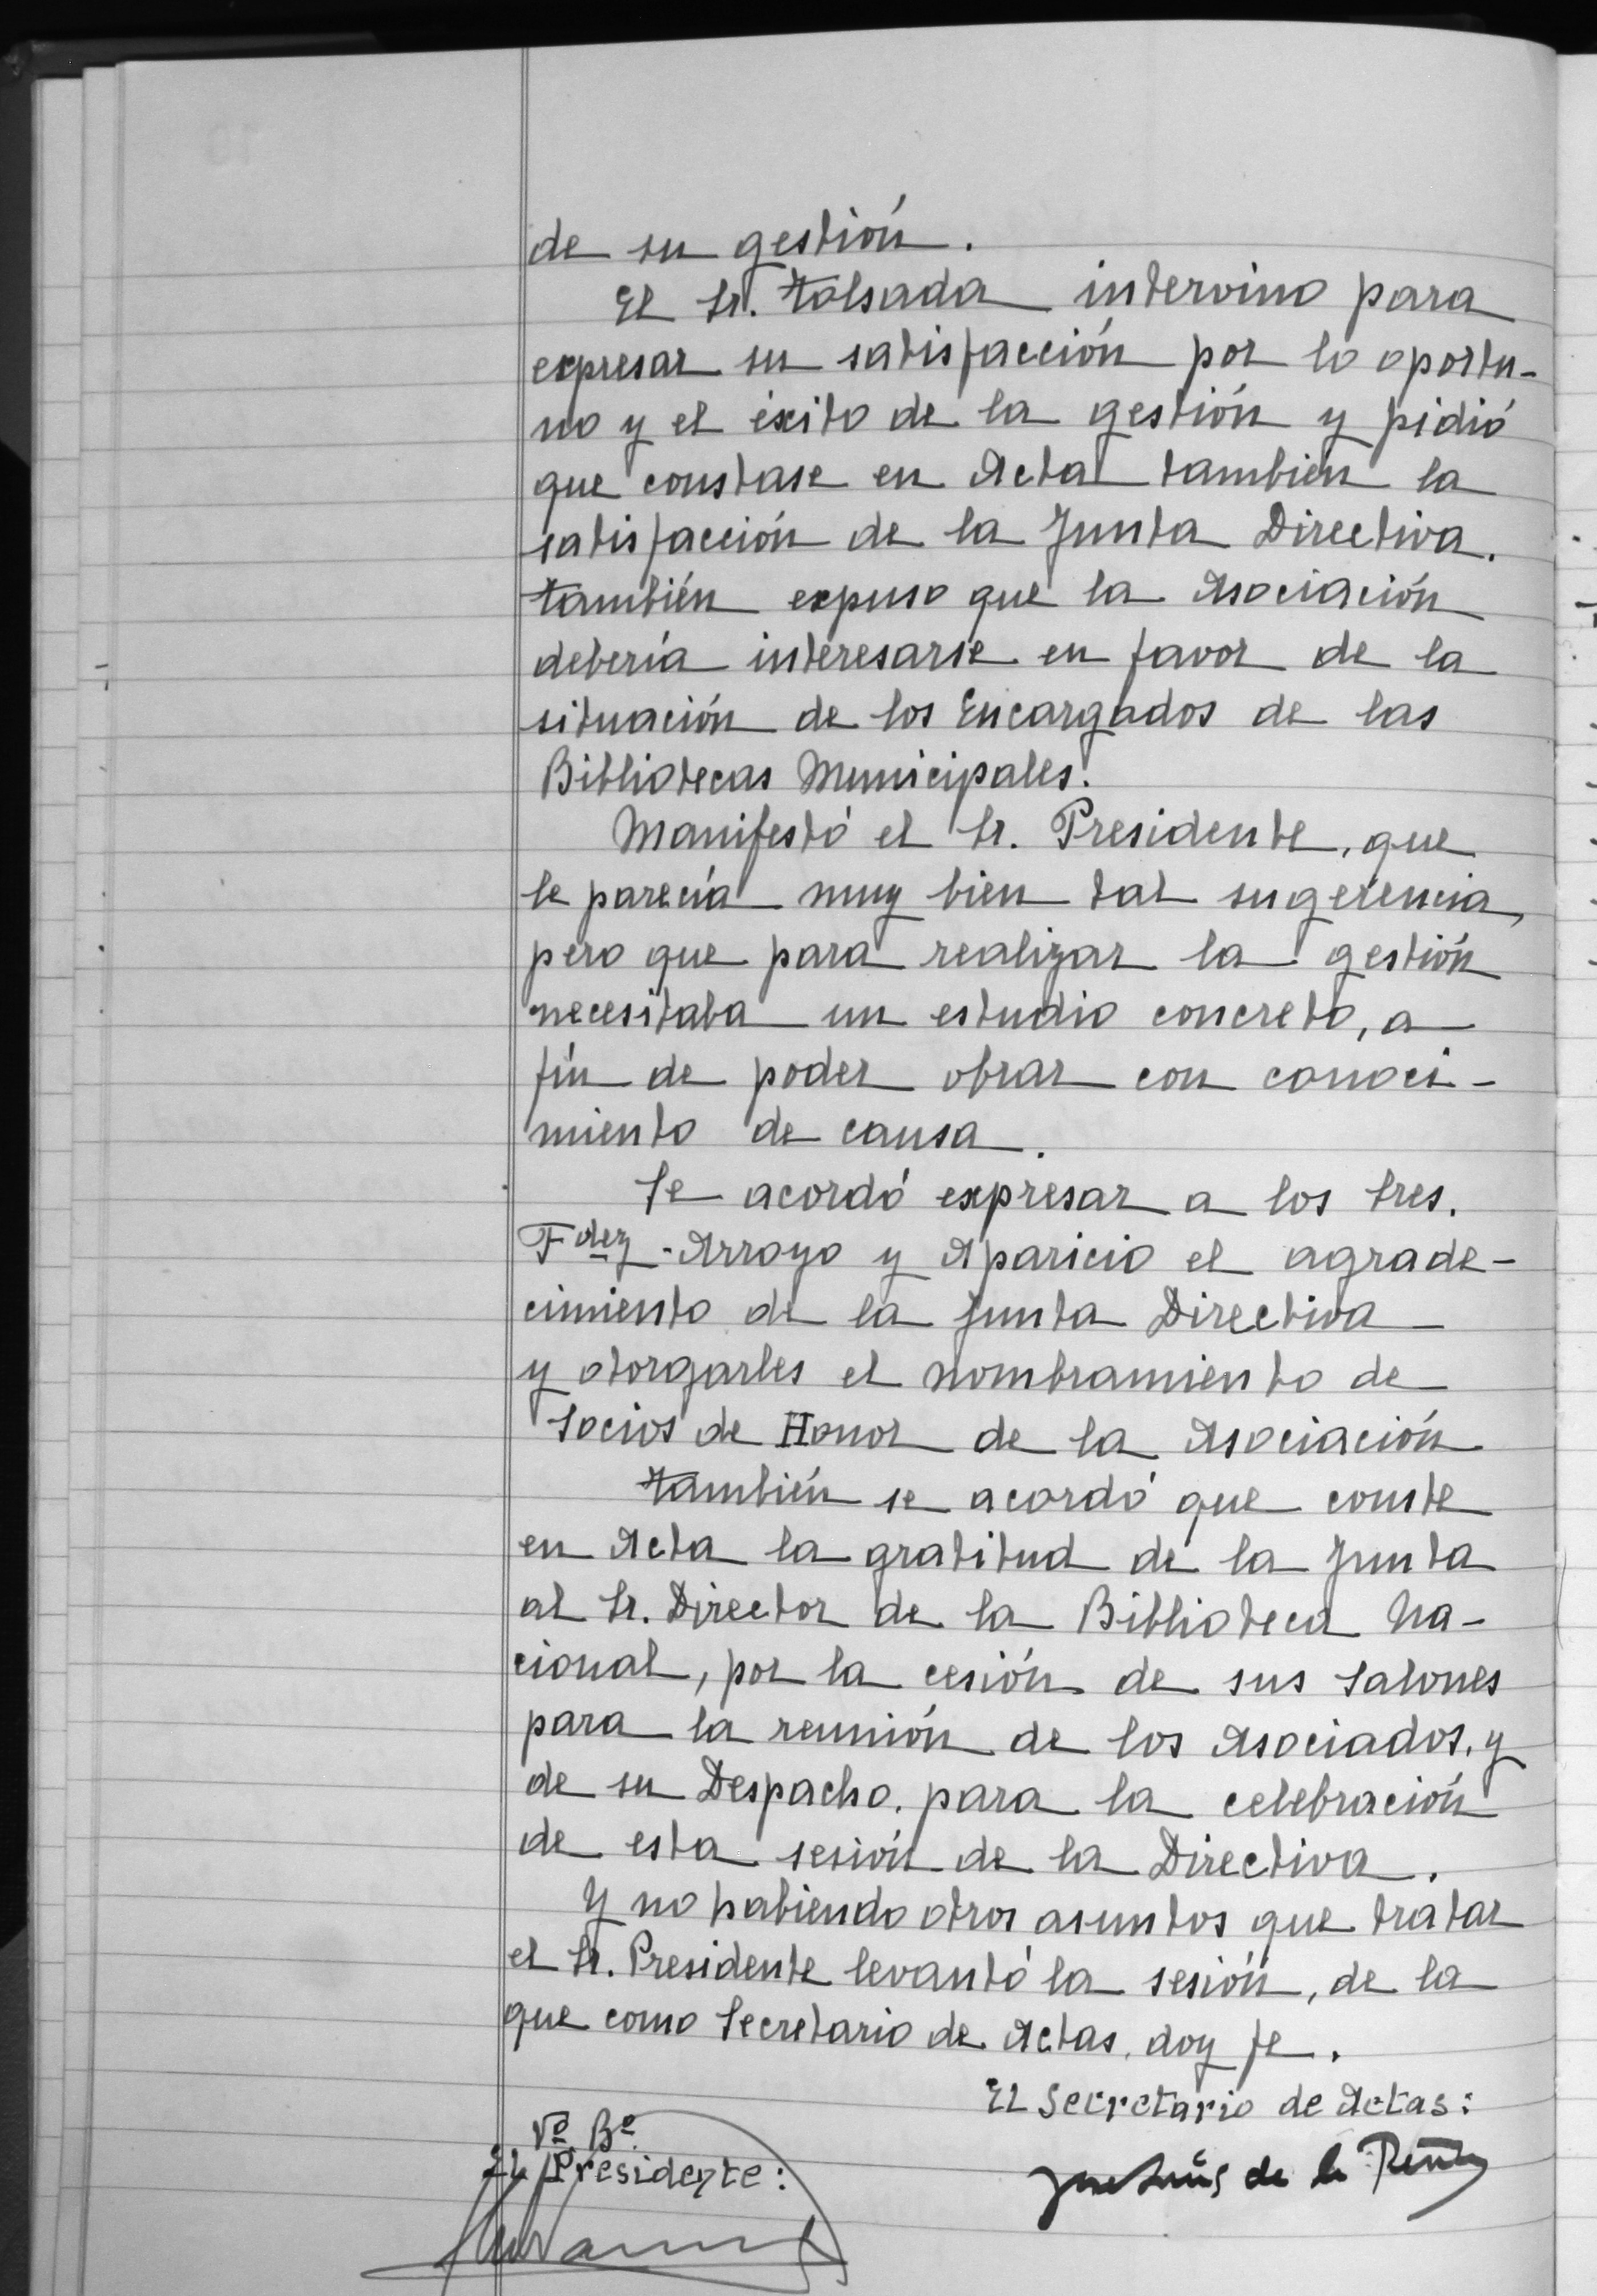 de su gestión.
El Sr. Tolsada intervino para
expresar su satisfacción por lo oportu-
no y el éxito de la gestión y pidió
que constase en Acta tambien la
satisfacción de la Junta Directiva.
También expuso que la Asociación
debería interesarse en favor de la
situación de los Encargados de las
Bibliotecas Municipales.
Manifestó el Sr. Presidente, que
le parecía muy bien tal sugerencia,
pero que para realizar la gestión
necesitaba un estudio concreto, a
fín de poder obrar con conoci-
miento de causa.
Se acordó expresar a los Sres.
Fdez-Arroyo y Aparicio el agrade-
cimiento de la Junta Directiva
y otorgarles el nombramiento de
Socios de Honor de la Asociación
También se acordó que conste
en Acta la gratitud de la Junta
al Sr. Director de la Biblioteca Na-
cional, por la cesión de sus Salones
para la reunión de los Asociados, y
de su Despacho, para la celebración
de esta sesión de la Directiva.
Y no habiendo otros asuntos que tratar
el Sr. Presidente levantó la sesión, de la
que como Secretario de Actas, doy fe.
El Secretario de Actas:
Vº Bº
El Presidente:
de la